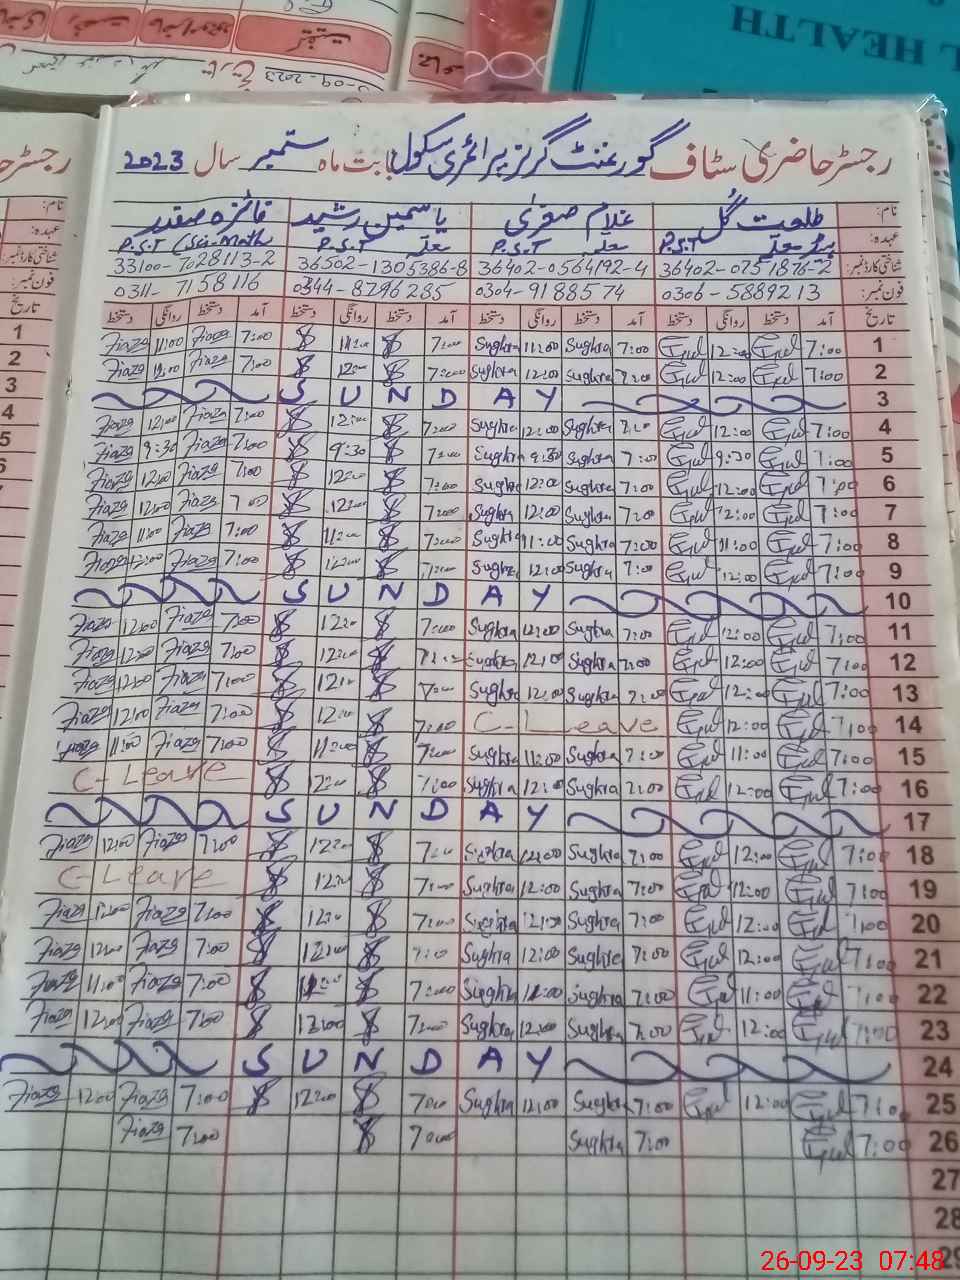 HEALTH
رجسٹر حاضری سٹاف گورنمنٹ گرلز پرائمری سکول بابت ماہ ستمبر سال 2023
نام: طلعت گل غلام صغریٰ یاسمین رشید فائزہ صفدر
عہدہ: P.S.T ہیڈ معلمہ P.S.T معلمہ P.S.T معلمہ P.S.T (Sci-Math
شناختی کارڈ نمبر: 36402-0751876-2 36402-0564192-4 36502-1305386-8 33100-7028113-2
فون نمبر: 0306-5889213 0304-9188574 0344-8796285 0311-7158116
تاریخ آمد دستخط روانگی دستخط آمد دستخط روانگی دستخط آمد دستخط روانگی دستخط آمد دستخط روانگی دستخط تاریخ
1 7:00 Gul 12:00 Gul 7:00 Sughra 11:00 Sughra 7:00 11:00 7:00 Fiaza 11:00 Fiaza 1
2 7:00 Gul 12:00 Gul 7:00 Sughra 12:00 Sughra 7:00 12:00 7:00 Fiaza 12:00 Fiaza 2
3 SUNDAY 3
4 7:00 Gul 12:00 Gul 7:00 Sughra 12:00 Sughra 7:00 12:00 7:00 Fiaza 12:00 Fiaza 4
5 7:00 Gul 9:30 Gul 7:00 Sughra 9:30 Sughra 7:00 9:30 7:00 Fiaza 9:30 Fiaza 5
6 7:00 Gul 12:00 Gul 7:00 Sughra 12:00 Sughra 7:00 12:00 7:00 Fiaza 12:00 Fiaza
7 7:00 Gul 12:00 Gul 7:00 Sughra 12:00 Sughra 7:00 12:00 7:00 Fiaza 12:00 Fiaza
8 7:00 Gul 11:00 Gul 7:00 Sughra 11:00 Sughra 7:00 11:00 7:00 Fiaza 11:00 Fiaza
9 7:00 Gul 12:00 Gul 7:00 Sughra 12:00 Sughra 7:00 12:00 7:00 Fiaza 12:00 Fiaza
10 SUNDAY
11 7:00 Gul 12:00 Gul 7:00 Sughra 12:00 Sughra 7:00 12:00 7:00 Fiaza 12:00 Fiaza
12 7:00 Gul 12:00 Gul 7:00 Sughra 12:00 Sughra 7:00 12:00 7:00 Fiaza 12:00 Fiaza
13 7:00 Gul 12:00 Gul 7:00 Sughra 12:00 Sughra 7:00 12:00 7:00 Fiaza 12:00 Fiaza
14 7:00 Gul 12:00 Gul C-Leave 7:00 12:00 7:00 Fiaza 12:00 Fiaza
15 7:00 Gul 11:00 Gul 7:00 Sughra 11:00 Sughra 7:00 11:00 7:00 Fiaza 11:00 Fiaza
16 7:00 Gul 12:00 Gul 7:00 Sughra 12:00 Sughra 7:00 12:00 C-Leave
17 SUNDAY
18 7:00 Gul 12:00 Gul 7:00 Sughra 12:00 Sughra 7:00 12:00 7:00 Fiaza 12:00 Fiaza
19 7:00 Gul 12:00 Gul 7:00 Sughra 12:00 Sughra 7:00 12:00 C-Leave
20 7:00 Gul 12:00 Gul 7:00 Sughra 12:00 Sughra 7:00 12:00 7:00 Fiaza 12:00 Fiaza
21 7:00 Gul 12:00 Gul 7:00 Sughra 12:00 Sughra 7:00 12:00 7:00 Fiaza 12:00 Fiaza
22 7:00 Gul 11:00 Gul 7:00 Sughra 11:00 Sughra 7:00 7:00 Fiaza 11:00 Fiaza
23 7:00 Gul 12:00 Gul 7:00 Sughra 12:00 Sughra 7:00 12:00 7:00 Fiaza 12:00 Fiaza
24 SUNDAY
25 7:00 Gul 12:00 Gul 7:00 Sughra 12:00 Sughra 7:00 12:00 7:00 Fiaza 12:00 Fiaza
26 7:00 Gul 7:00 Sughra 7:00 7:00 Fiaza
27
28
29
26-09-23 07:48